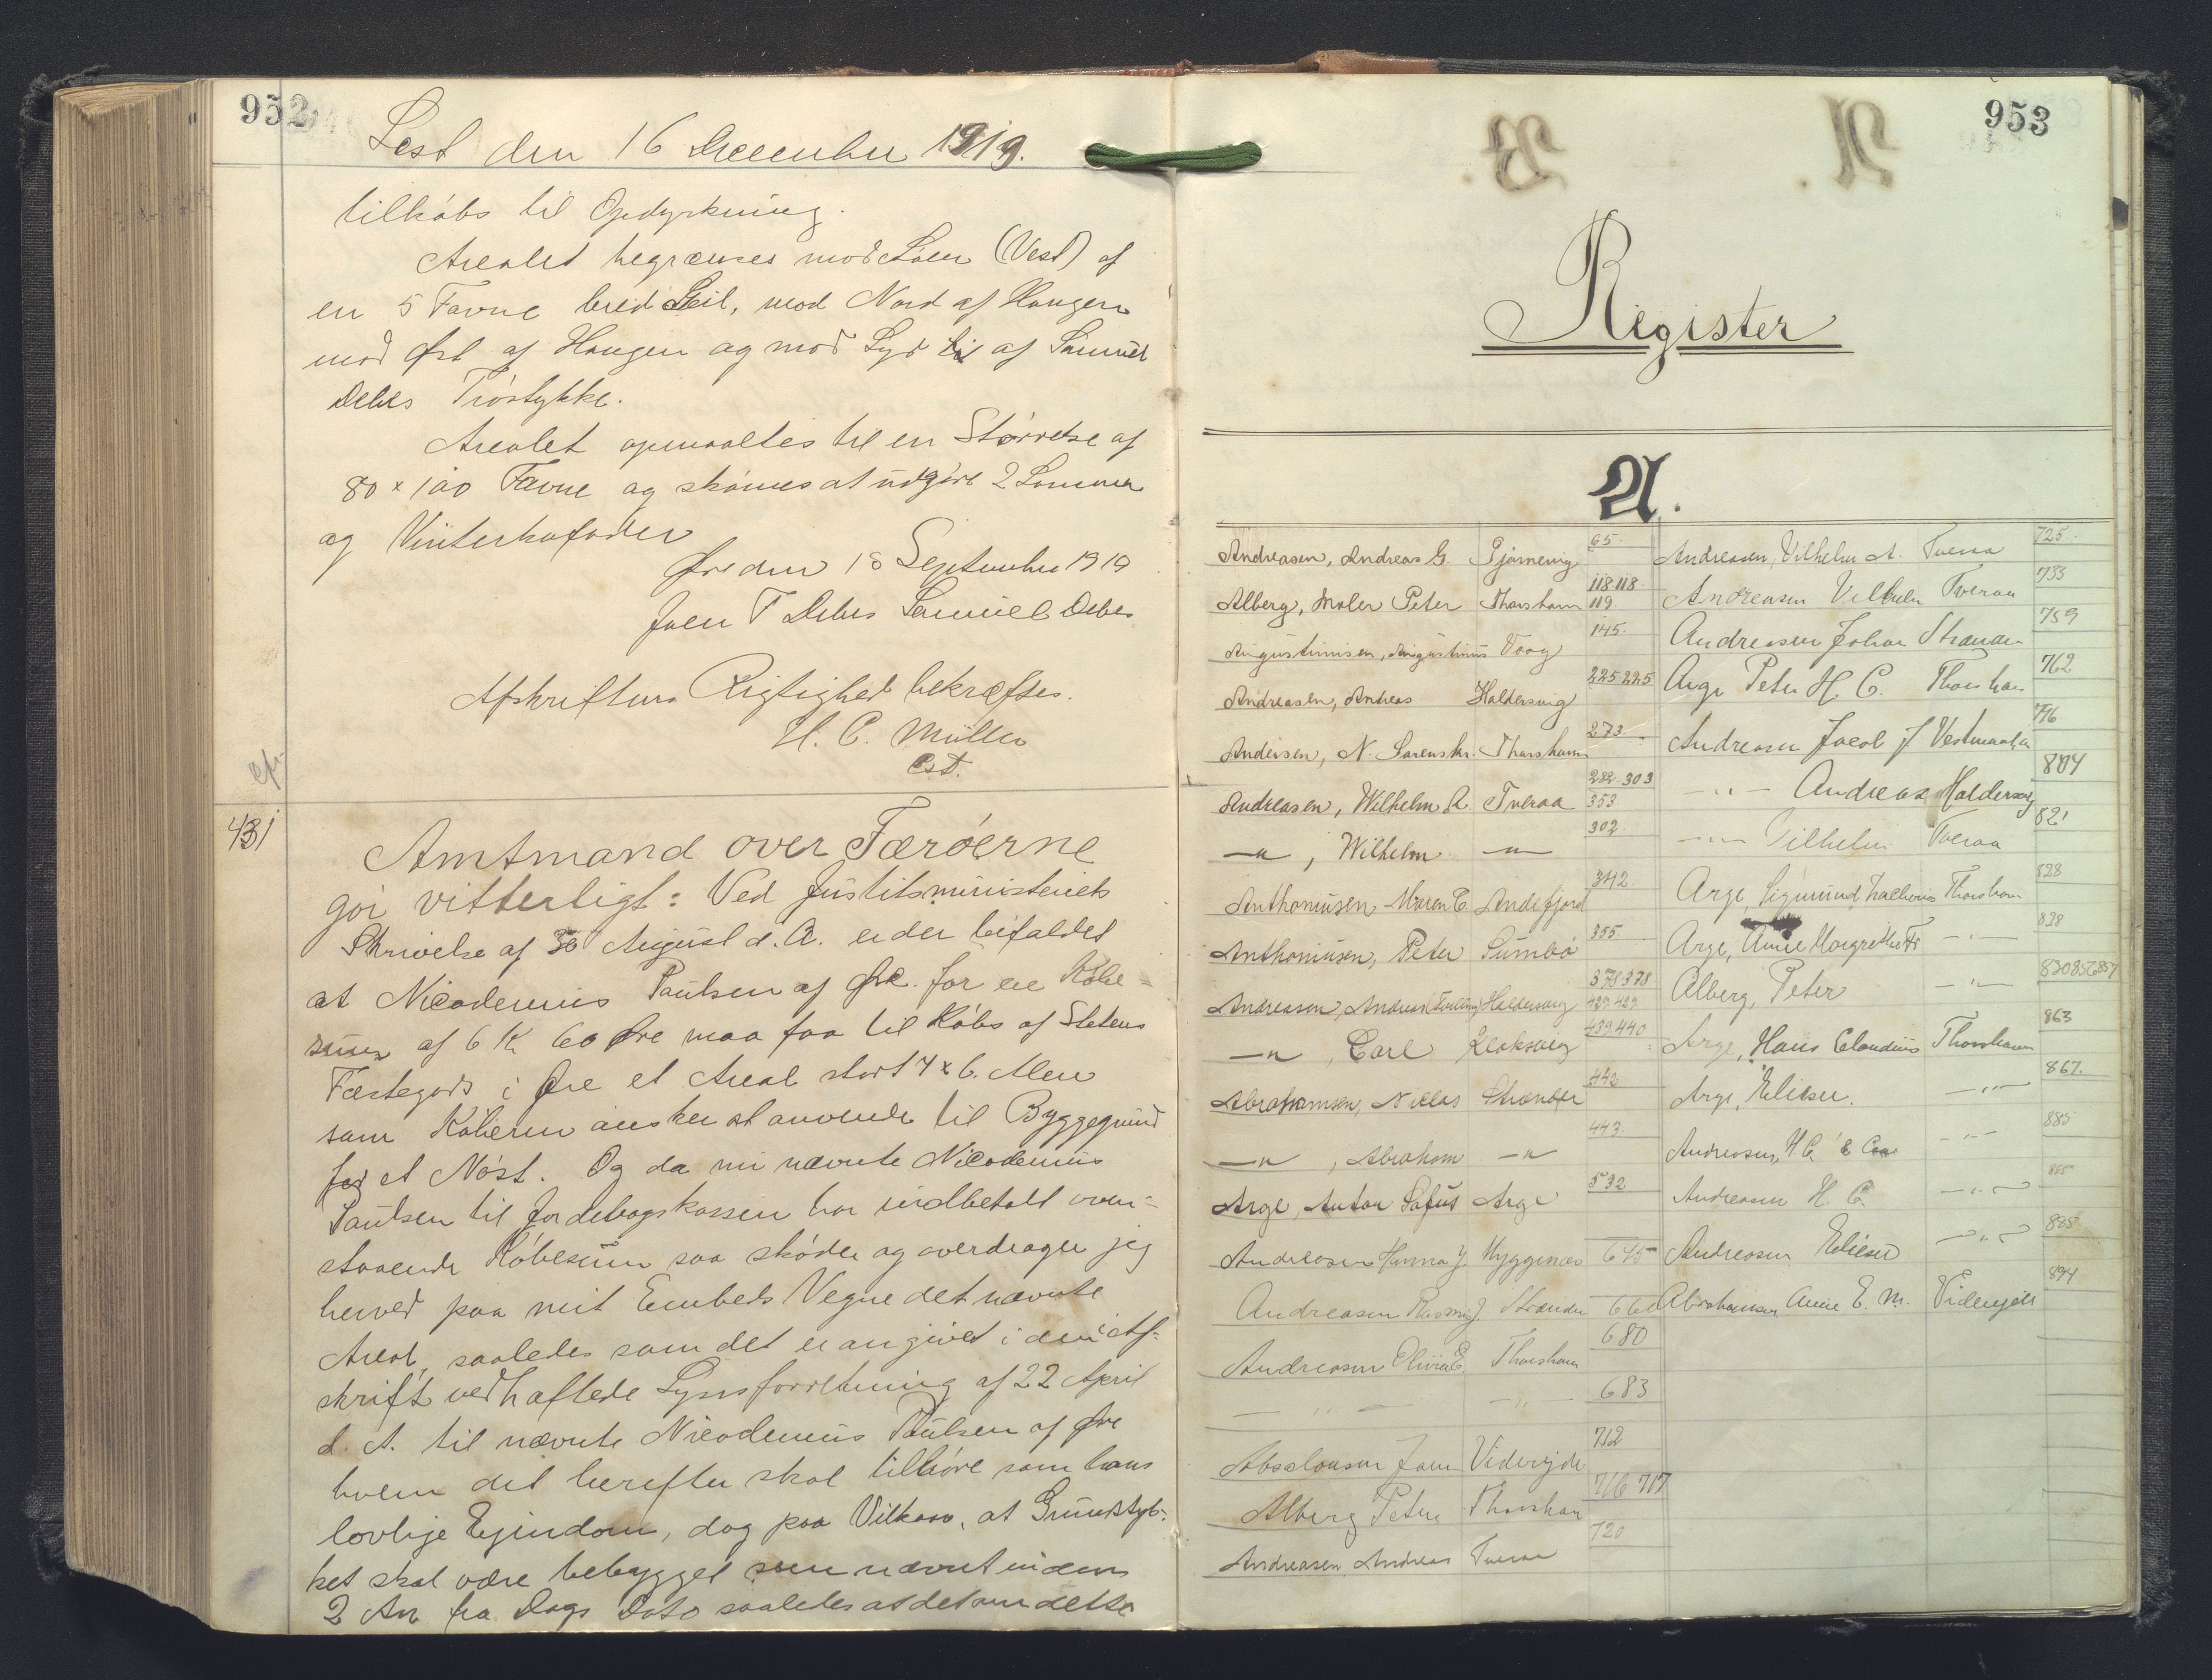 952
Lest den 16 December 1919.
tilkøbs til Opdyrkning.
Arealet begrænses mod Søen (Vest) af
en 5 Favne bred Geil, mod Nord af Haugen
mod Øst af Haugen og mod Syd til af Samuel
Debes Trøstykke.
Arealet opmaaltes til en Størrelse af
80 x 100 Favne og skønnes at udgøre 2 Sommer
og Vinterkofoder
Øre den 18 September 1919
Joen F Debes Samuel Debes
Afskriftens Rigtighed bekræftes.
H. C. Müller
cst.
431
Amtmand over Færøerne
gør vitterligt: Ved Justitsministeriets
Skrivelse af 30 August d. A. er der bifaldet
at Nicodemus Paulsen af Øre for en Købe=
sum af 6 K 60 Øre maa faa til Købs af Statens
Fæstegods i Øre et Areal stort 4 x 6 Alen
som Køberen ønsker at anvende til Byggegrund
for et Nøst. Og da nu nævnte Nicodemus
Paulsen til Jordebogskassen har indbetalt oven=
staaende Købesum saa skøder og overdrager jeg
herved paa mit Embeds Vegne det nævnte
Areal, saaledes som det er angivet i den i Af-
skrift vedhæftede Synsforretning af 22 April
d. A. til nævnte Nicodemus Paulsen af Øre
hvem det herefter skal tilhøre som hans
lovlige Ejendom, dog paa Vilkaar, at Grundstyk-
ket skal være bebygget som nævnt inden
2 Aar fra Dags Dato saaledes at det om dette
953
Register
A.
Andreasen, Andreas G. Gjørneng 65
Alberg, Maler Peter Thorshavn 118 118 119
Augustinusen, Augustinus Vaag 145
Andreasen, Andreas Haldersvig 225 225
Andersen, N. Sørenskr. Thorshavn 273
Andreasen, Wilhelm A. Tveraa 282 303 353
—"—, Wilhelm —"— 302
Anthoniusen Maren C. Andefjord 342
Anthoniusen, Peter Sumbø 355
Andreasen, Andreas (Tvilling) Haldersvig 378 378 429 429
—"—, Carl Klaksvig 439 440
Abrahamsen, Niclas Strænder 442
—"—, Abraham —"— 443
Arge, Anton Sofus Arge 532
Andreasen Hanna J. Myggenæs 645
Andreasen Rasmus J. Strænder 660
Andreasen Olivia E. Thorshavn 680
— " — — " — 683
Absalonsen Joen Viderejde 712
Alberg Peter Thorshavn 716 717
Andreasen Andreas Tveraa 720
Andreasen, Vilhelm A. Tveraa 725
Andreasen Vilhelm Tveraa 733
Andreasen Johan Strænder 759
Arge Peter H. C. Thorshavn 762
Andreasen Jacob J Vestmanhavn 776
— " — Andreas Haldersvig 804
— " — Vilhelm Tveraa 821
Arge, Sigmund Zacharias Thorshavn 828
Arge, Anne Margrethe Fr — " — 828
Alberg, Peter — " — 830 856 857
Arge, Hans Claudius Thorshavn 863
Arge, Elieser. — " — 867.
Andreasen, H C, E — " — 885
Andreasen H. C. — " — 885
Andreasen Elieser — " — 885
Abrahamsen Anne E. M. Viderejde 894